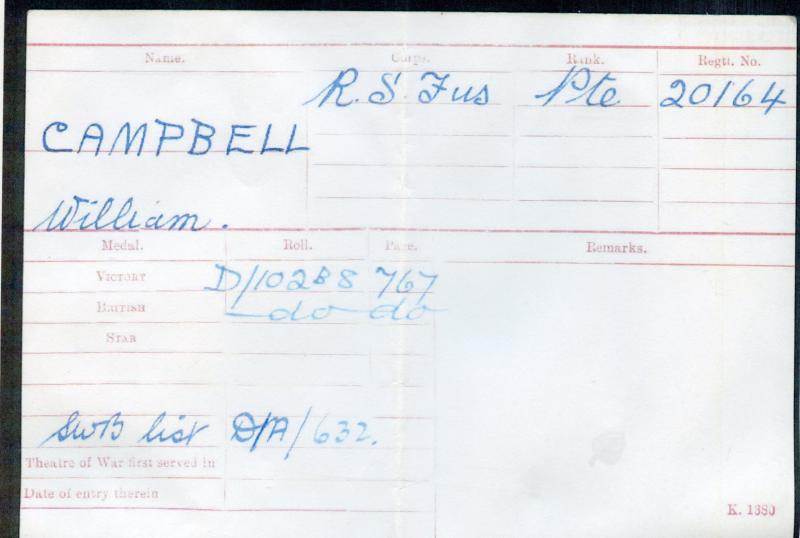 Name. Corps. Rank. Regtl. No.
R. S. Fus Pte 20164
CAMPBELL
William.
Medal. Roll. Page. Remarks.
VICTORY D/102B8 767
BRITISH do do
STAR
SWB list D/A/632.
Theatre of War first served in
Date of entry therein
K. 1380